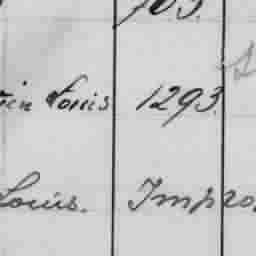 703.
Louis 1293.
Louis. Impro